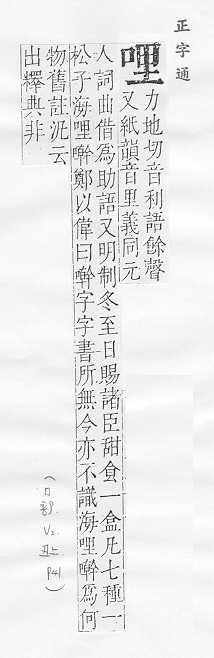 正字通
哩 力地切音利語餘聲
又紙韻音里義同元
人詞曲借為助語又明制冬至日賜諸臣甜食一盒凢七種一
松子海哩㘓鄭以偉曰㘓字字書所無今亦不識海哩㘓爲何
物舊註泥云
出釋典非
(口部. V2. 丑上 P41)